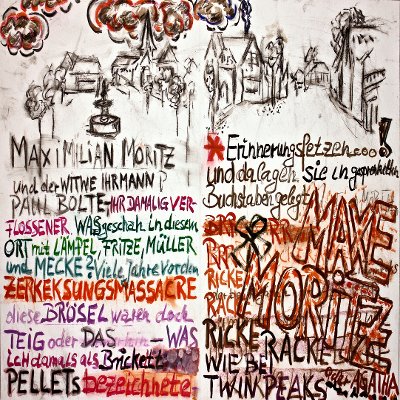 MAXIMILIAN MORITZ
und der WITWE IHRMANN?
PAUL BOLTE, IHR DAMALIG VER-
FLOSSENER, WAS geschah in diesem
ORT mit LÄMPEL, FRITZE, MÜLLER
und MECKE? Viele Jahre vor dem
ZERKEKSUNGSMASSACRE
diese BRÖSEL waren doch
TEIG oder DAS – WAS
ich damals als Brickett
PELLETS bezeichnete
* Erinnerungsfetzen....!
und da lagen sie in
Buchstaben gelegt
RICKE
MAXE
MORITZE
RICKE RACKE
WIE BEI
TWIN PEAKS oder AGATHA